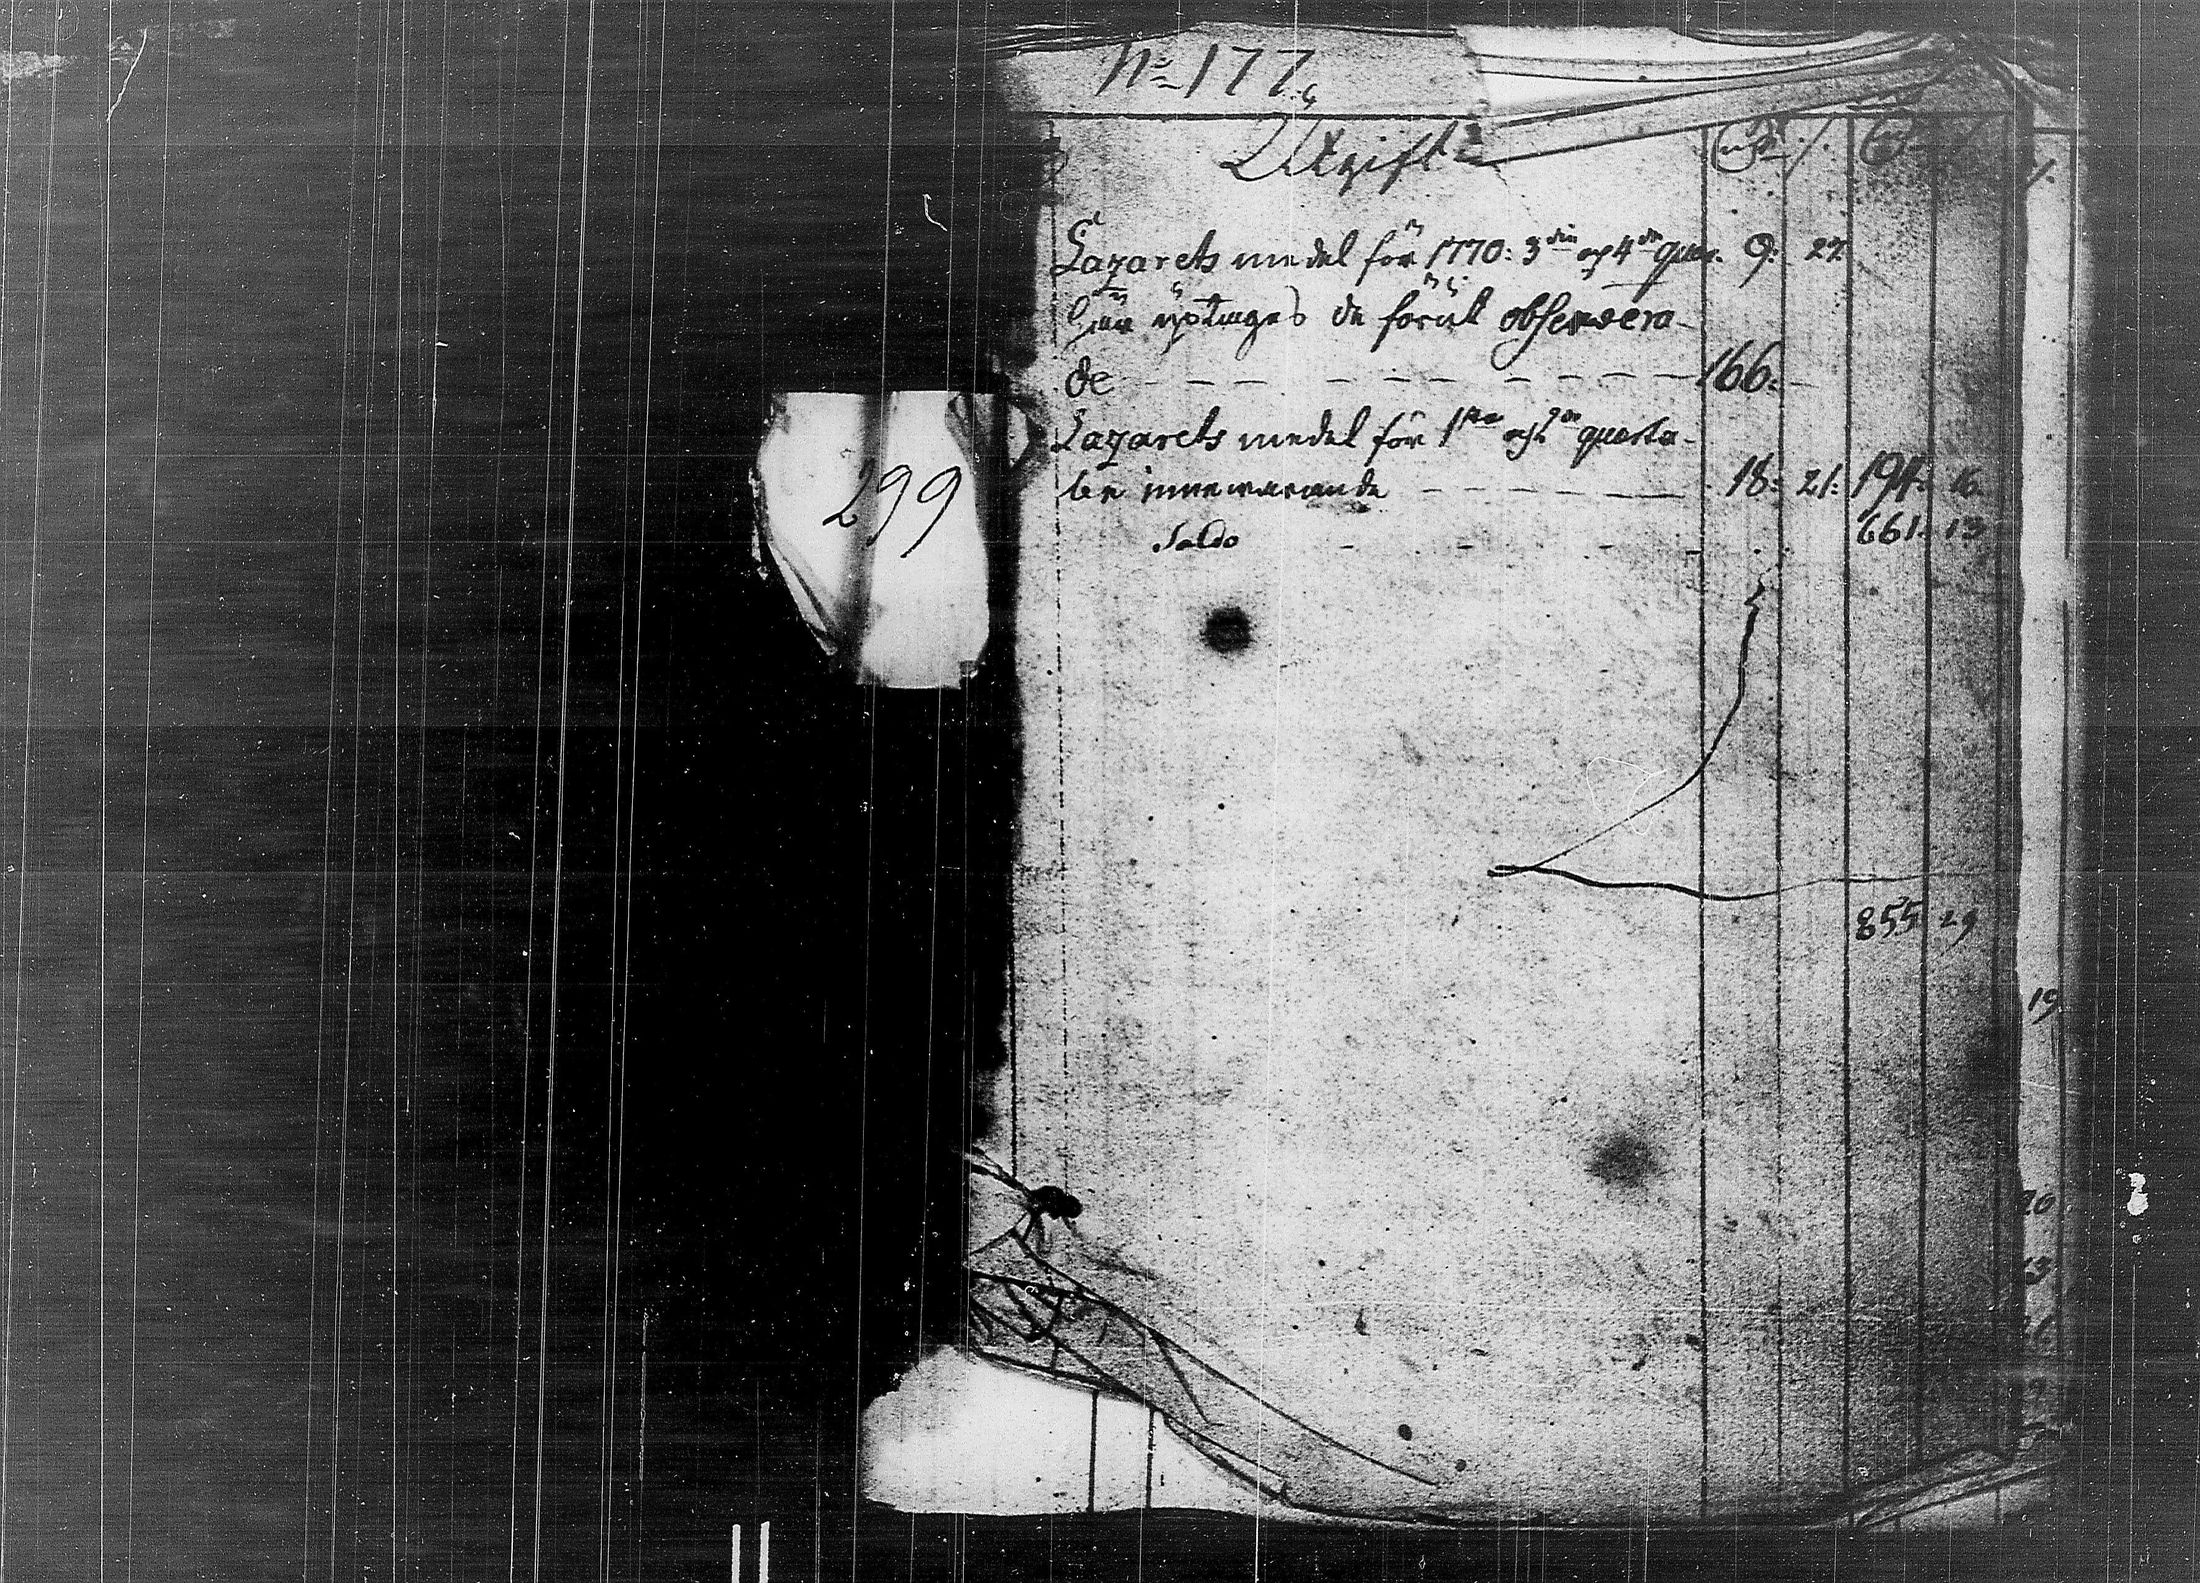 No 177.
Utgift
Lazarets medel för 1770: 3die och 4de quar. 9: 27
här uptages de förut observera-
de - - - - - - 166: -
Lazarets medel för 1sta och 2dra quarta-
ler innewarande - - - - 18: 21: 194: 16
Saldo - - - - - 661: 13
299
855 29
19